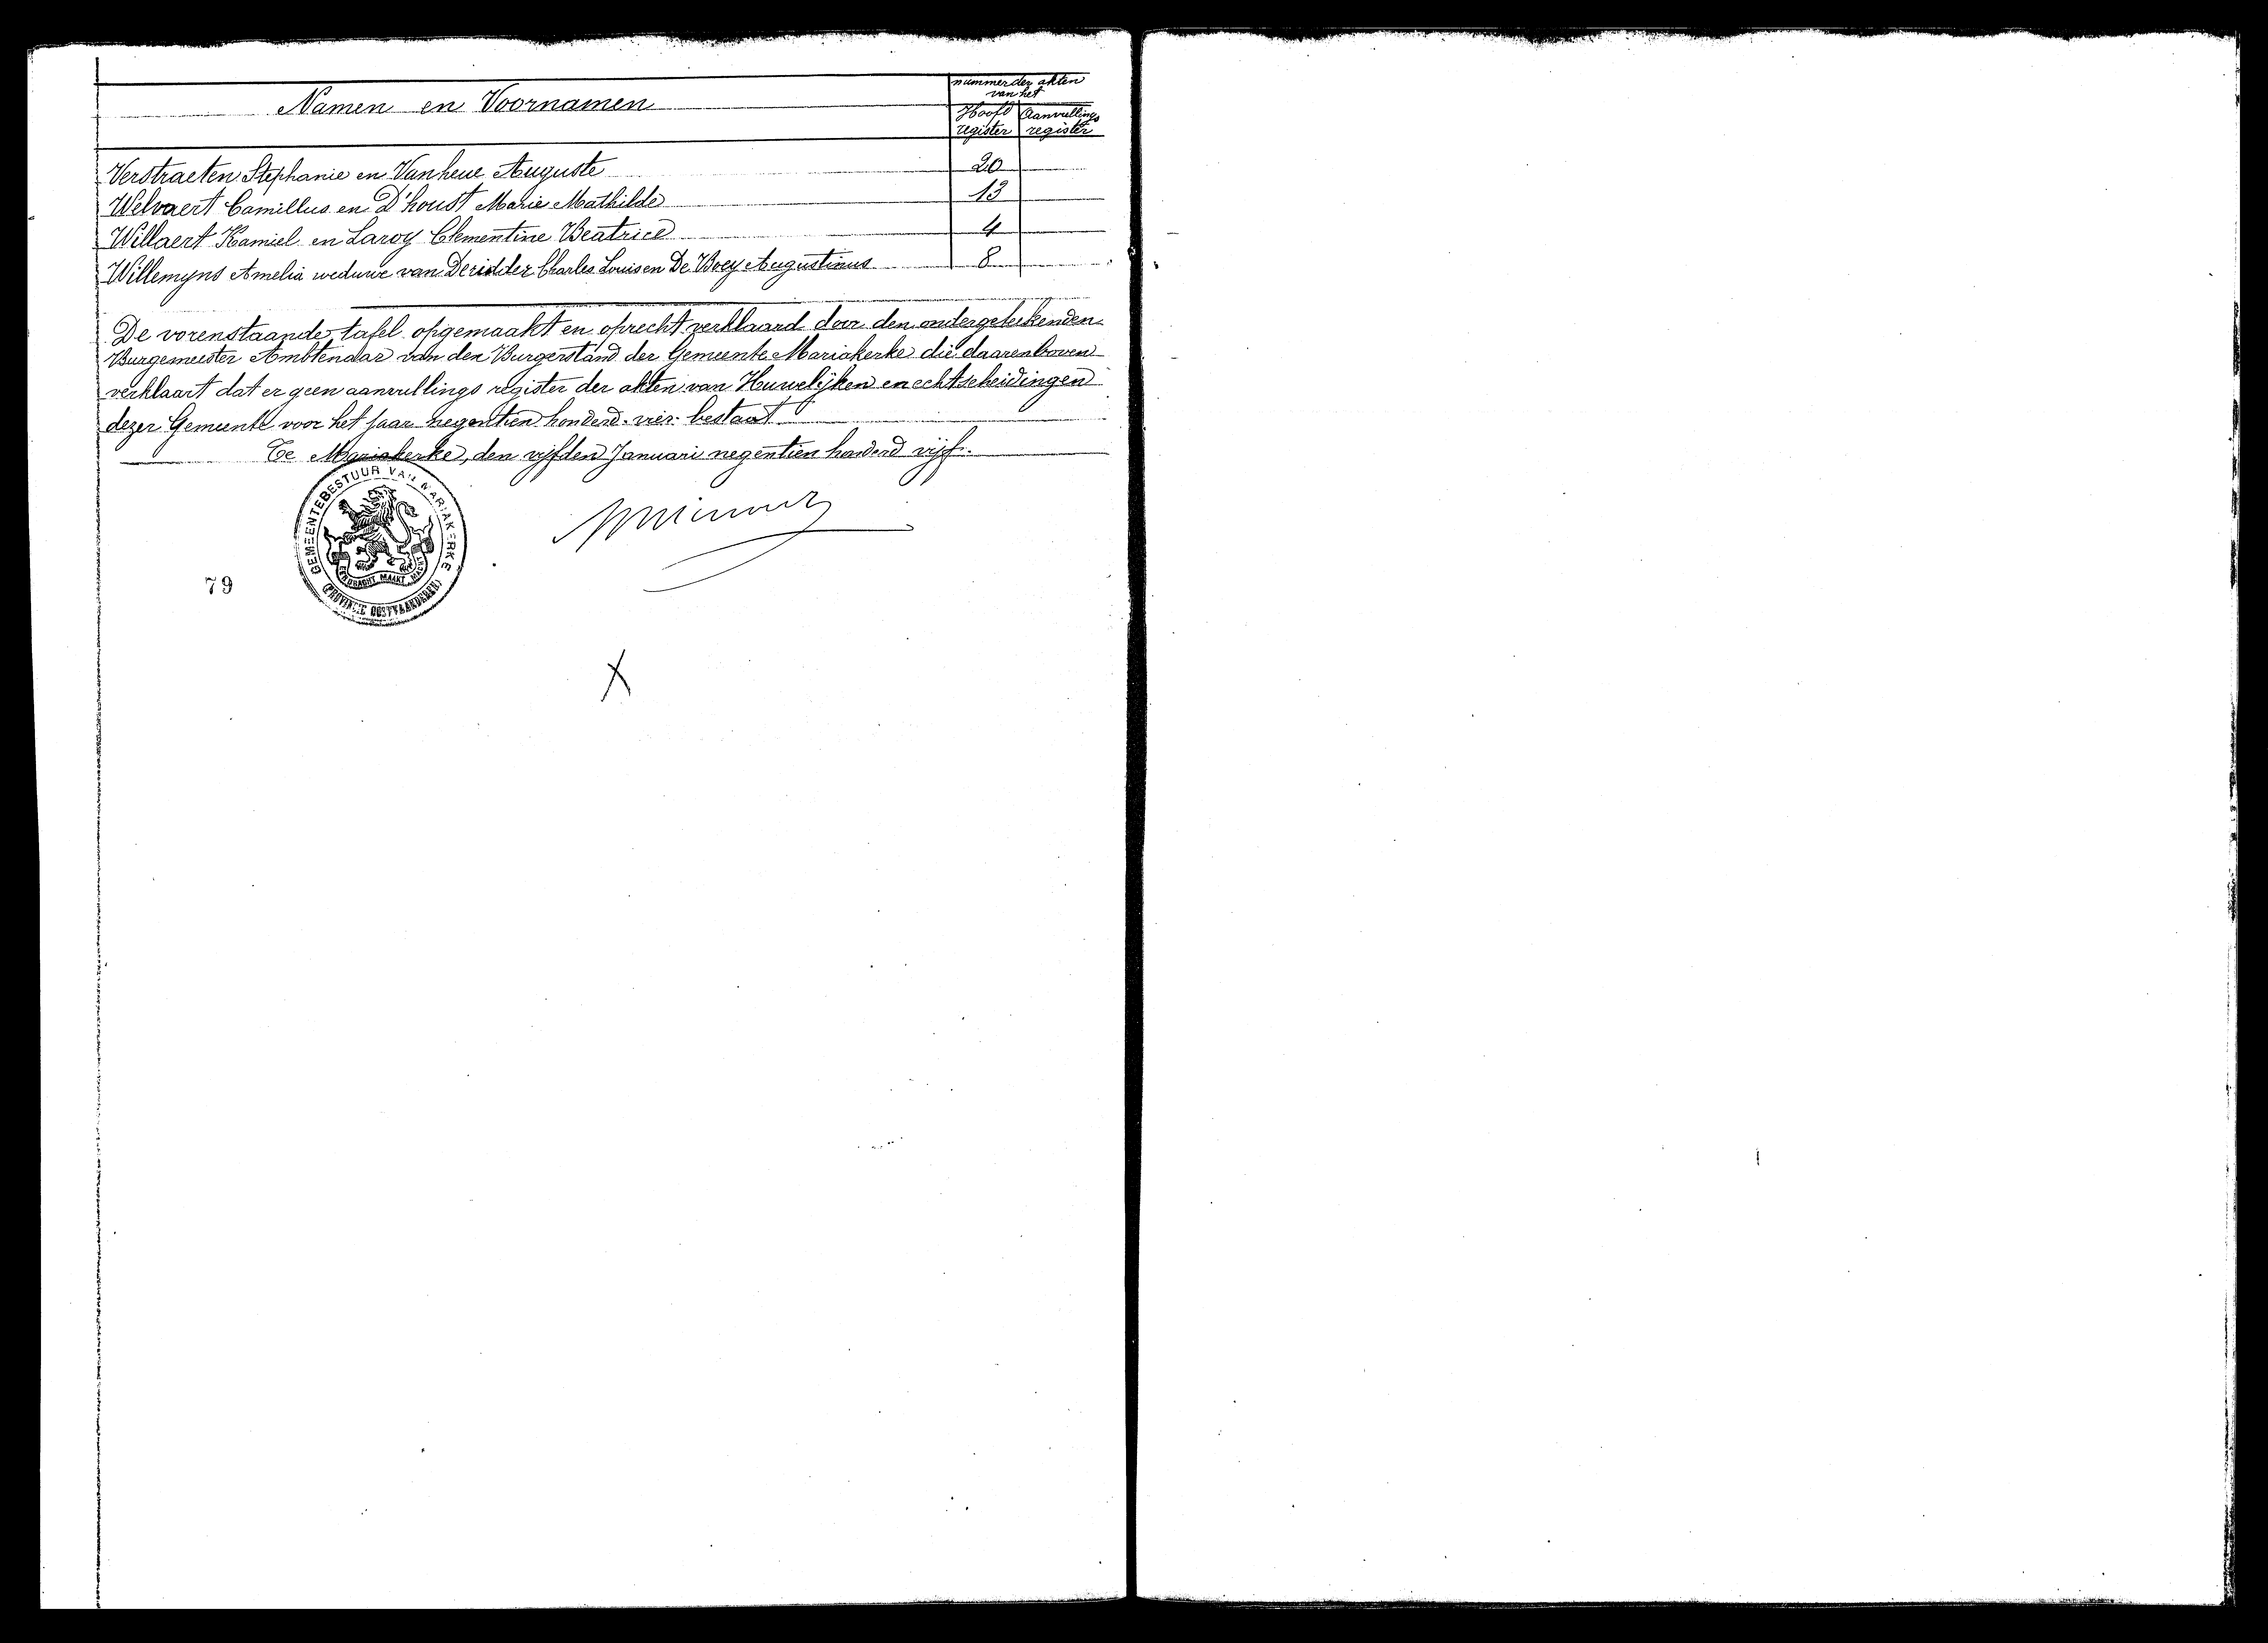 nummer der akten
van het
Namen en Voornamen
Hoofd Aanvullings
register register
Verstraeten Stephanie en Vanheue Auguste 20
Welvaert Camillus en D'houst Marie Mathilde 13
Willaert Kamiel en Laroy Clementine Beatrice 4
Willemyns Amelia weduwe van Deridder Charles Louis en De Boey Augustinus 8
De vorenstaande tafel opgemaakt en oprecht verklaard door den ondergeteekenden
Burgemeester Ambtenaar van den Burgerstand der Gemeente Mariakerke die daarenboven
verklaart dat er geen aanvullings register der akten van Huwelijken en echtscheidingen
dezer Gemeente voor het jaar negentien honderd vier bestaat
Te Mariakerke, den vijfden Januari negentien honderd vijf.
GEMEENTEBESTUUR VAN MARIAKERKE
EENDRACHT MAAKT MACHT
(PROVINCIE OOSTVLAANDEREN)
79
X